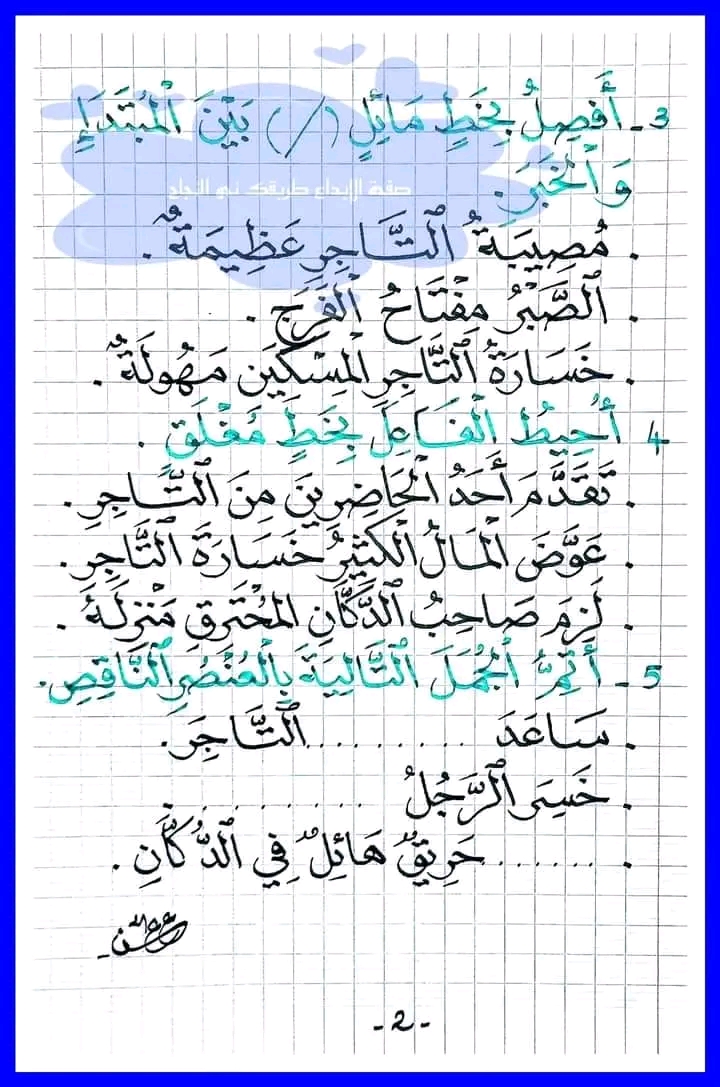 3 - أَفْصِلُ بِخَطٍ مَائِلٍ (/) بَيْنَ الْمُبْتَدَإِ
وَالْخَبَرِ.
صفة الإبداع طريقك نحو النجاح
. مُصِيبَةُ التَّاجِرِ عَظِيمَةٌ .
. الصَّبْرُ مِفْتَاحُ الْفَرَجِ .
. خَسَارَةُ التَّاجِرِ الْمِسْكِينِ مَهُولَةٌ .
4 أُحِيطُ الْفَاعِلَ بِخَطٍ مُغْلَقٍ .
. تَقَدَّمَ أَحَدُ الْحَاضِرِينَ مِنَ التَّاجِرِ .
. عَوَّضَ الْمَالُ الْكَثِيرُ خَسَارَةَ التَّاجِرِ .
. لَزِمَ صَاحِبُ الدُّكَّانِ الْمُحْتَرِقِ مَنْزِلَهُ .
5 - أُتِمُّ الْجُمَلَ التَّالِيَةَ بِالْعُنْصُرِ النَّاقِصِ.
. سَاعَدَ ............ التَّاجِرَ.
. خَسِرَ الرَّجُلُ ............
. ......... حَرِيقٌ هَائِلٌ فِي الدُّكَّانِ .
- 2 -